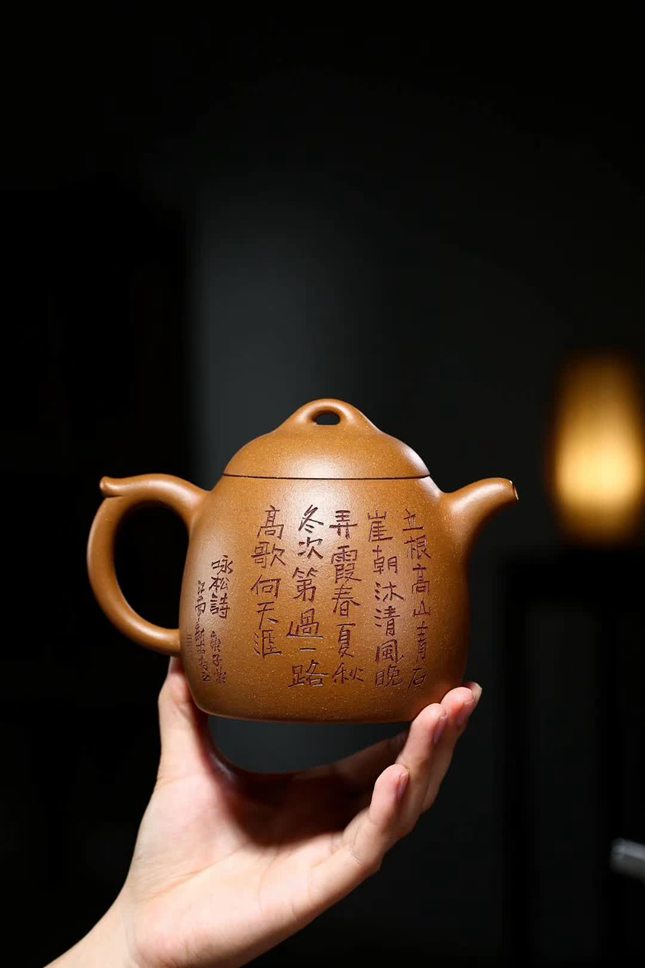 立根高山青石
崖朝沐清風晚
弄霞春夏秋
冬次第過一路
高歌向天涯
咏松詩